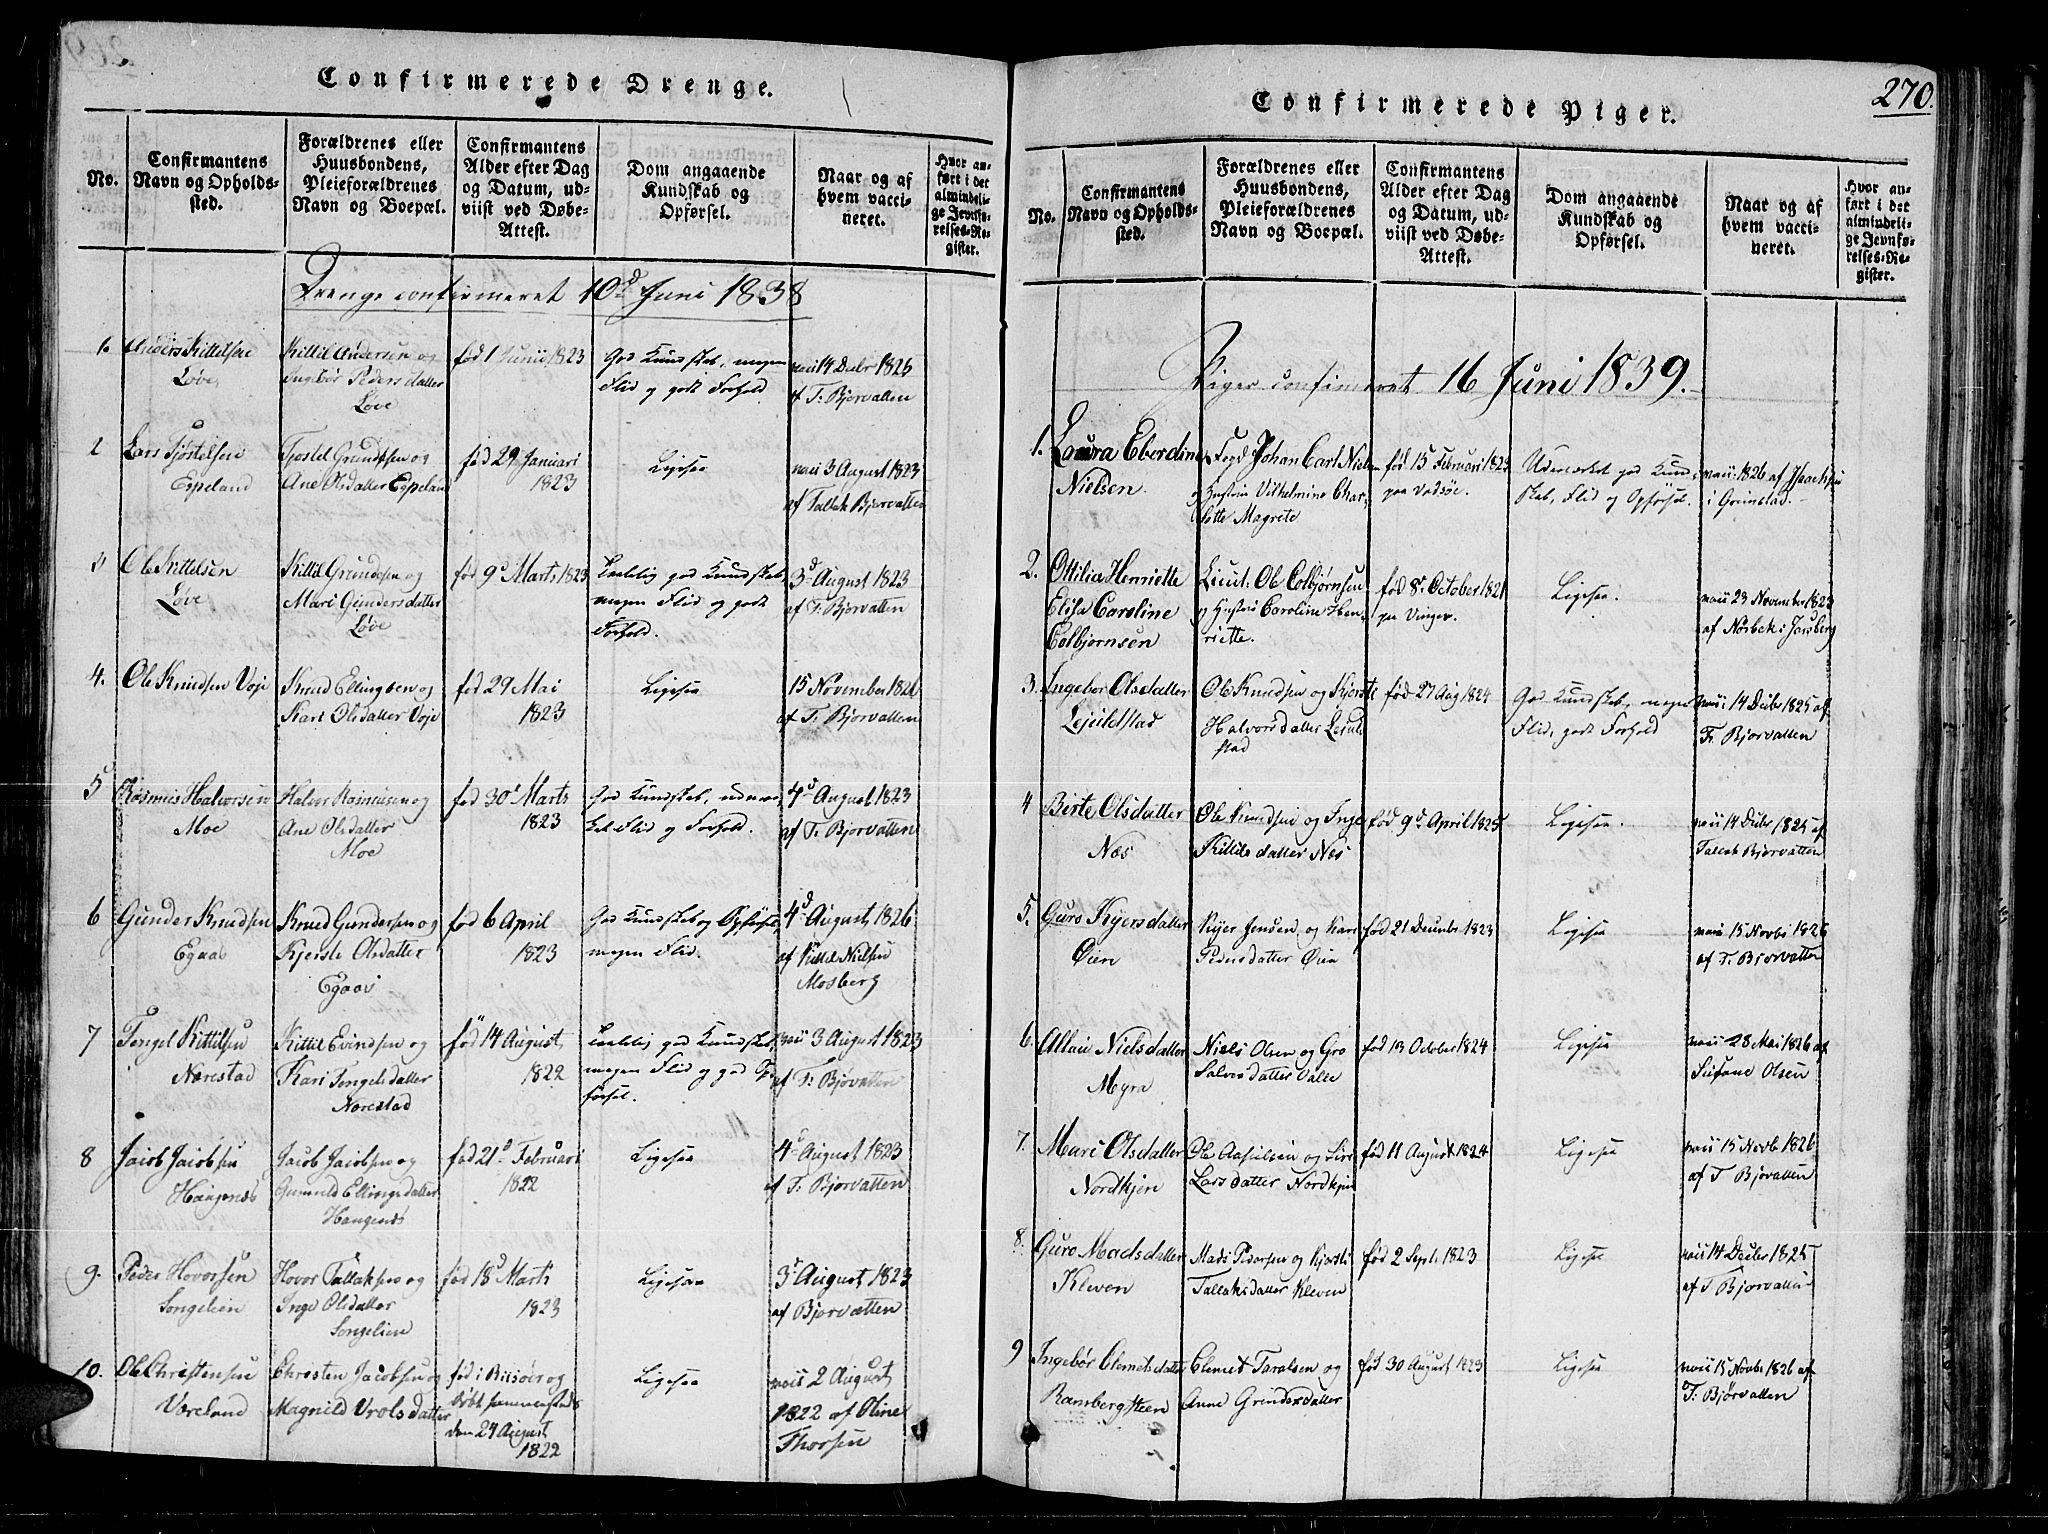 Confirmerede Drenge.
No.
Confirmantens
Navn og Opholds-
sted.
Forældrenes eller
Huusbondens,
Pleieforældrenes
Navn og Boepæl.
Confirmantens
Alder efter Dag
og Datum, ud-
viist ved Døbe-
Attest.
Dom angaaende
Kundskab og
Opførsel.
Naar og af
hvem vacci-
neret.
Hvor an-
ført i det
almindeli-
ge Jevnfø-
relses-Re-
gister.
Drenge confirmeret 10d Juni 1838
1.
Anders Kittelsen
Løve
Kittil Andersen og
Ingebør Pedersdatter
Løve
fød 1 Junii 1823
God Kundskab, megen
Flid og godt Forhold
14 Decbr 1826
af T: Bjorvatten
2
Lars Tjøstelsen
Espeland
Tjostel Grundesen og
Ane Olsdatter Espeland
fød 29 Januari
1823
Ligesaa
3 August 1823
af Tallak Bjorvatten
3
Ole Kittelsen
Løve
Kittil Grundesen og
Mari Gundersdatter
Løve
fød 9d Marts 1823
god Kundskab,
megen Flid og godt
Forhold.
3d August 1823
af T: Bjorvatten
4.
Ole Knudsen Voje
Knud Ellingsen og
Kari Olsdatter Voje
fød 29 Mai
1823
Ligesaa
15 November 1826
af T. Bjorvatten
5
Rasmus Halvorsen
Moe
Halvor Rasmusen og
Ane Olsdatter
Moe
fød 30d Marts
1823
God Kundskab, udmær-
ket Flid og Forhold.
4d August 1823
af T: Bjorvatten
6
Gunder Knudsen
Egaas
Knud Gundersen og
Kjerste Olsdatter
Egaas
fød 6 April
1823
God Kundskab og Opførsel,
megen Flid.
4d August 1826
af Kittil Nielsen
Mosberg
7
Tengel Kittilsen
Narestad
Kittil Evindsen og
Kari Tengelsdatter
Narestad
fød 14 August
1822
god Kundskab,
megen Flid og god Op-
førsel.
3 August 1823
af T: Bjorvatten
8
Jacob Jacobsen
Haugenæs
Jacob Jacobsen og
Gunnild Ellingsdatter
Haugenæs
fød 21d Februari
1822
Ligesaa
4d August 1823
af T: Bjorvatten
9.
Peder Hovorsen
Songelien
Hovor Tallaksen og
Inge Olsdatter
Songelien
fød 18d Marts
1823
Ligesaa
3d August 1823
af Bjorvatten
10.
Ole Christensen
Vøreland
Christen Jacobsen og
Magnild Vrolsdatter
fød i Risøer og
døbt sammesteds
den 24 August
1822
Ligesaa
2 August
1822 af Oline
Thorsen
270.
Confirmerede Piger.
No.
Confirmantens
Navn og Opholds-
sted.
Forældrenes eller
Huusbondens,
Pleieforældrenes
Navn og Boepæl.
Confirmantens
Alder efter Dag
og Datum, ud-
viist ved Døbe-
Attest.
Dom angaaende
Kundskab og
Opførsel.
Naar og af
hvem vacci-
neret.
Hvor an-
ført i det
almindeli-
ge Jevnfø-
relses-Re-
gister.
Piger confirmeret 16 Juni 1839.
1.
Laura Eberdine
Nielsen.
Fogd Johan Carl Nielsen
og Hustrue Vilhelmine Char-
lotte Magrete
fød 15 Februari 1825
paa Vadsøe.
Udmærket god Kund-
skab, Flid og Opførsel.
1826 af Isachsen
i Grimstad.
2.
Ottilia Henriette
Elisa Caroline
Colbjørnsen
Lieut: Ole Colbjørnsen
og Hustru Caroline Hen-
riette.
fød 8d October 1821
paa Vinger.
Ligesaa
23 November 1823
af Nørbek i Jarlsberg
3.
Ingebor Olsdatter
Lejuldstad
Ole Knudsen og Kjersti
Halvorsdatter Lejuld-
stad
fød 27 Aug 1824
God Kundskab, megen
Flid, godt Forhold
14 Decbr 1825 af
T. Bjorvatten
4
Birte Olsdatter
Næs
Ole Knudsen og Inge
Kittilsdatter Næs
fød 9d April 1825
Ligesaa.
14 Decbr 1825 af
Tallak Bjorvatten
5.
Guro Kyersdatter
Øien
Kyer Jensen og Kari
Pedersdatter Øien
fød 21 December 1823
Ligesaa
15 Novbr 1826
af T. Bjorvatten
6.
Nielsdatter
Myra
Niels Olsen og Gro
Salvesdatter Valle
fød 13 October 1824
Ligesaa
28 Mai 1826 af
Susane Olsen
7.
Mari Olsdatter
Nordkjen
Ole Aasulsen og Siri
Larsdatter Nordkjen
fød 11 August 1824
Ligesaa
15 Novbr 1826
af T Bjorvatten
8.
Guro Madsdatter
Kleven
Mads Pedersen og Kjersti
Tallaksdatter Kleven
fød 2 Sept: 1823
Ligesaa
14 Decbr 1825
af T Bjorvatten
9
Ingebør Clemetsdatter
Rambergsteen
Clemet Taralsen og
Anne Grundesdatter
fød 30 August 1823
Ligesaa
15 Novbr 1826 af
T: Bjørvatten